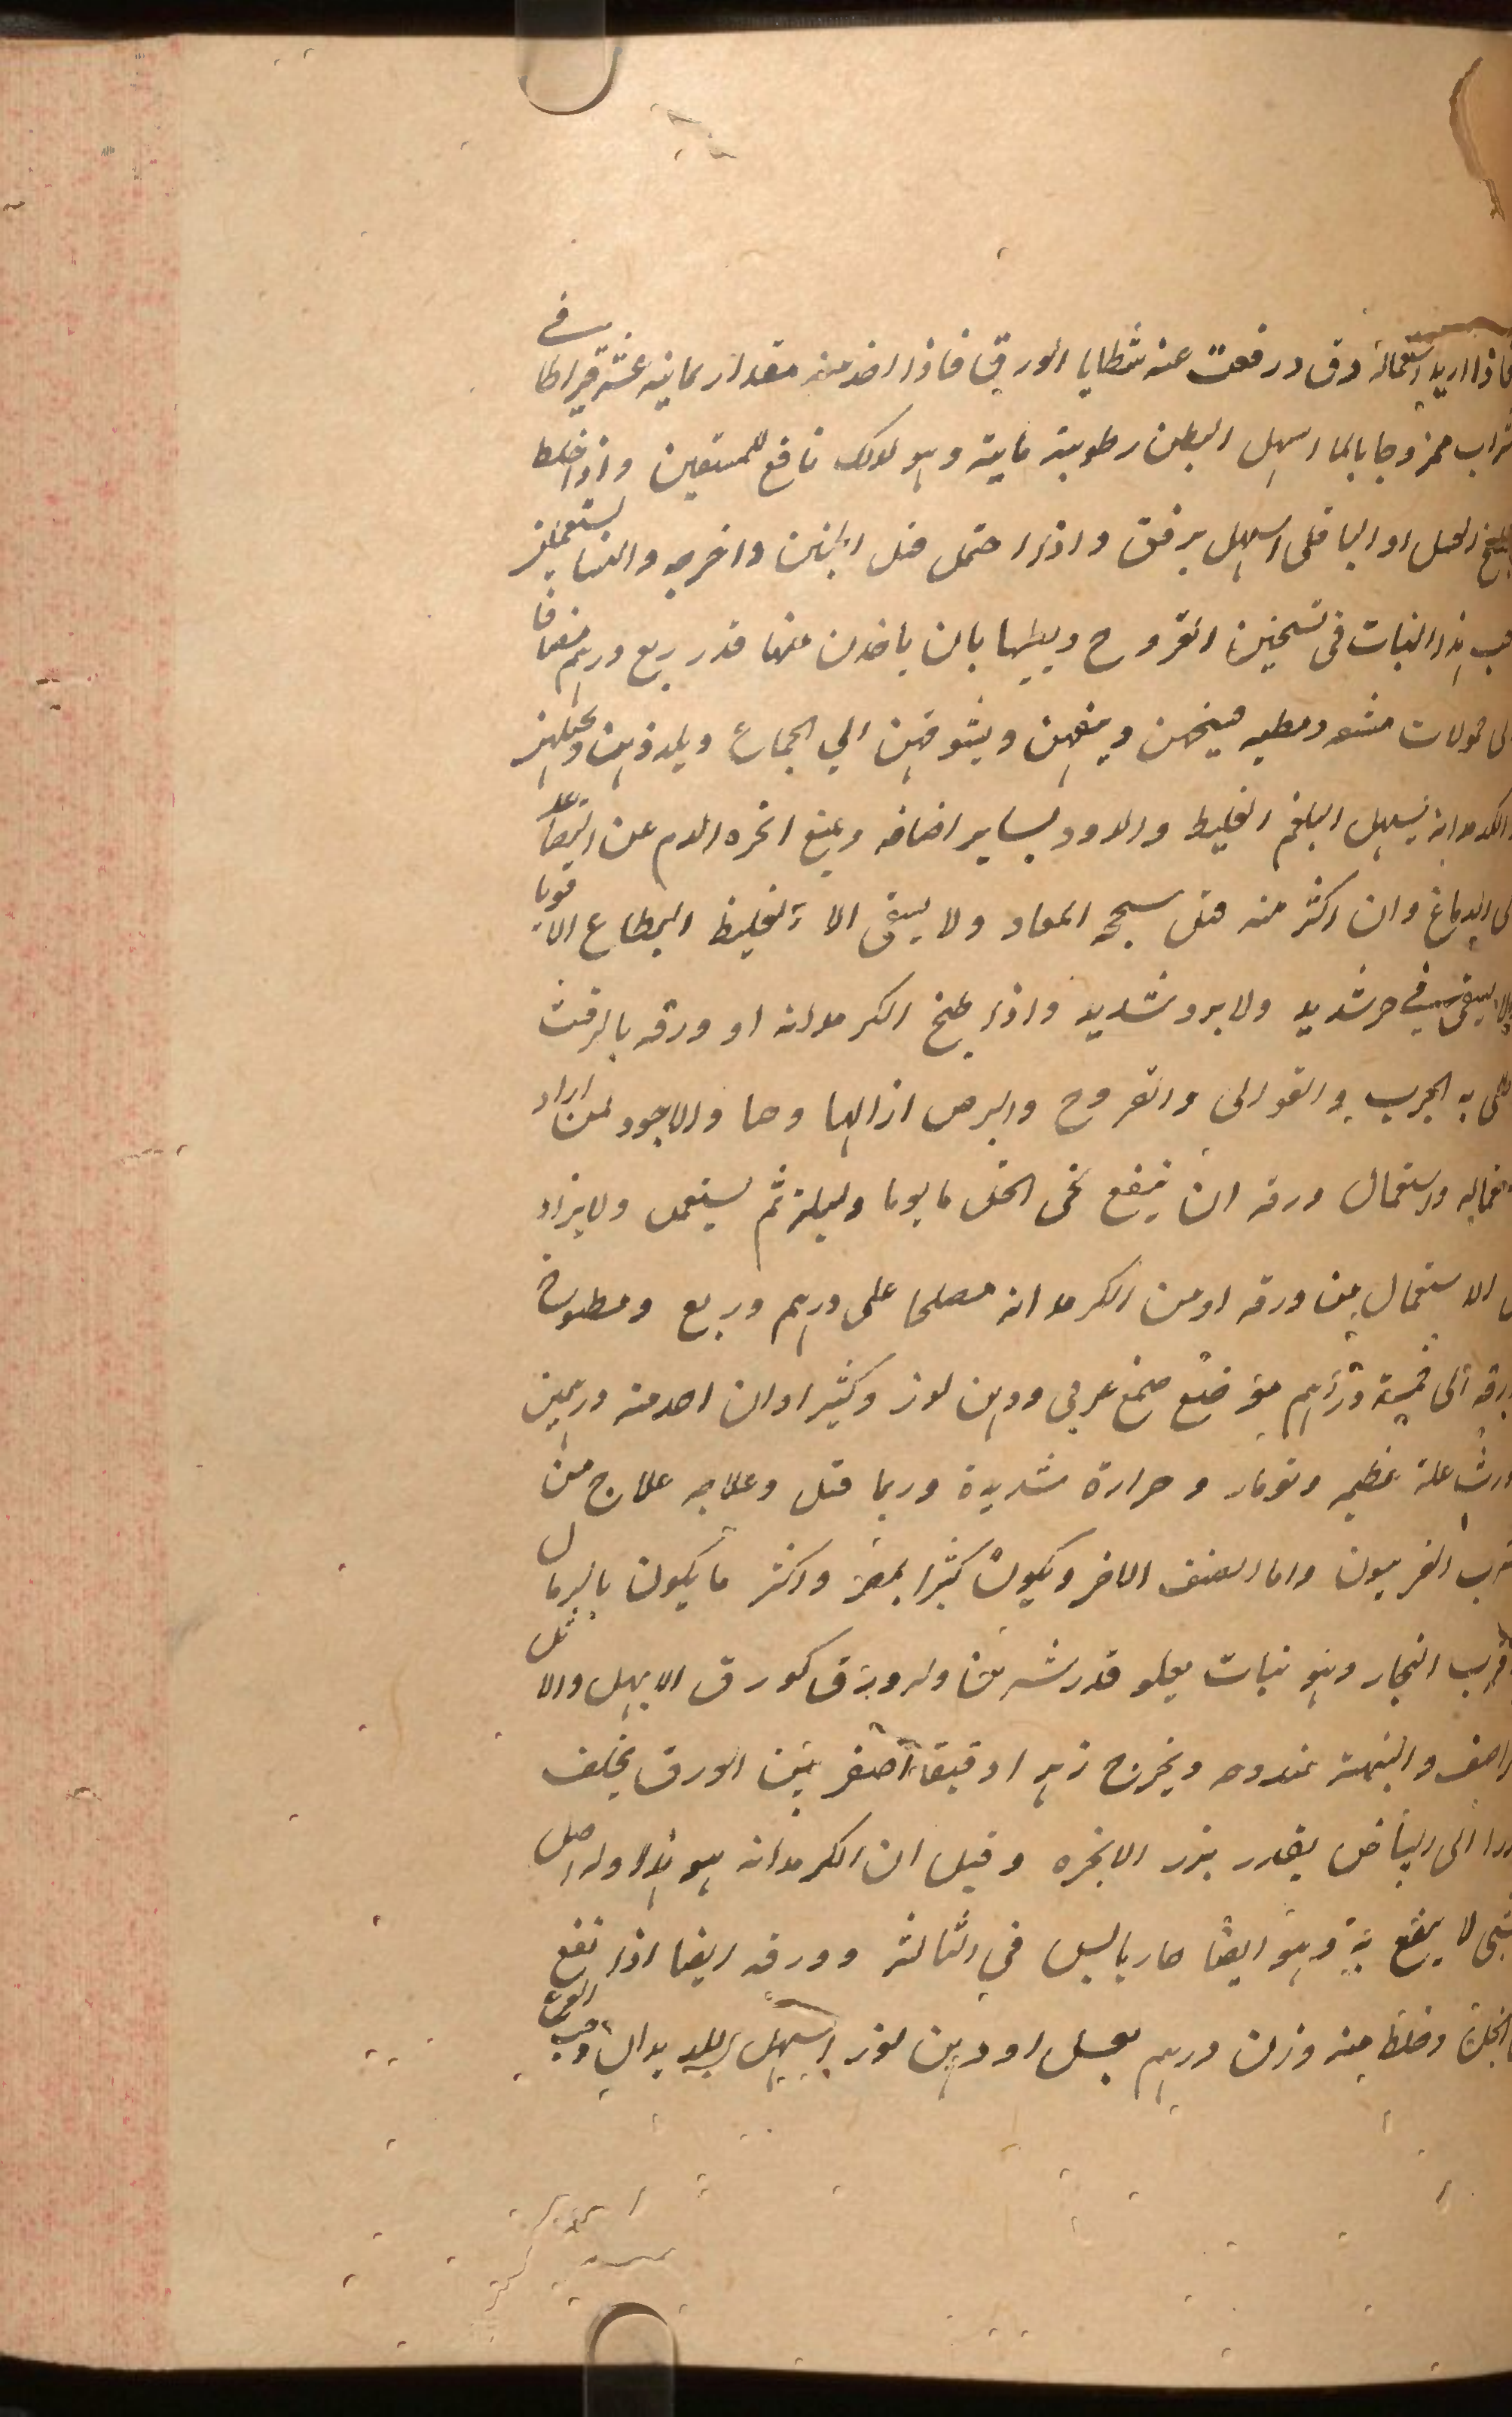 فاذا اريد استعماله دق ورفعت عنه شظايا الورق فاذا اخذ منه مقدار ثمانية عشر قيراطا في
شراب ممزوجا بالماء اسهل البطن رطوبة مائية وهو لذلك نافع للمستقين واذا خلط
بطبيخ العسل او الباقلى اسهل برفق واذا احتمل قتل الجنين واخرجه والنسا يستعملن
حب هذا النبات في تسخين القروح وبيلها بان ياخذن منها قدر ربع درهم مضافا
الى حمولات ويشوقهن الي الجماع ويلذذهن
الكرمدانه يسهل البلغم الغليظ والدود بساير اصنافه ويمنع ابخرة الدم عن التصاعد
الى الدماغ وان اكثر منه قتل بسحج المعاد ولا يسقى الا لغليظ الطباع الاقويا
ولا يسقى في حر شديد ولا برد شديد واذا طبخ الكرمدانه او ورقه بالزفت
طلى به الجرب والقوابى والقروح والبرص ازالها وحا والاجود لمن اراد
استعماله واستعمال ورقه ان ينقع في الخل يوما وليلة ثم يستعمل ولا يزاد
في الاستعمال من ورقه او من الكرمدانه مصلحا على درهم وربع ومطبوخ
ورقه الى خمسة دراهم مع صمغ عربي ودهن لوز وكثيرا وان اخذ منه درهمين
اورث علة عظيمه وحرارة شديدة وربما قتل وعلاجه علاج من
شرب الفربيون واما الصنف الاخر ويكون كثيرا بمصر واكثر ما يكون بالرمال
وقرب البحار وهو نبات يعلو قدر شبرين وله ورق كورق الابهل والاثل
ويخرج زهرا دقيقا اصفر بين الورق يخلف
بزرا الى البياض بقدر بزر الانجره وقيل ان الكرمدانه هو هذا وله اصل
خشبي لا ينتفع به وهو ايضا حار يابس في الثالثة وورقه ايضا اذا نقع
في الخل وخلط منه وزن درهم بعسل او دهن لوز اسهل الديدان وحب القرع